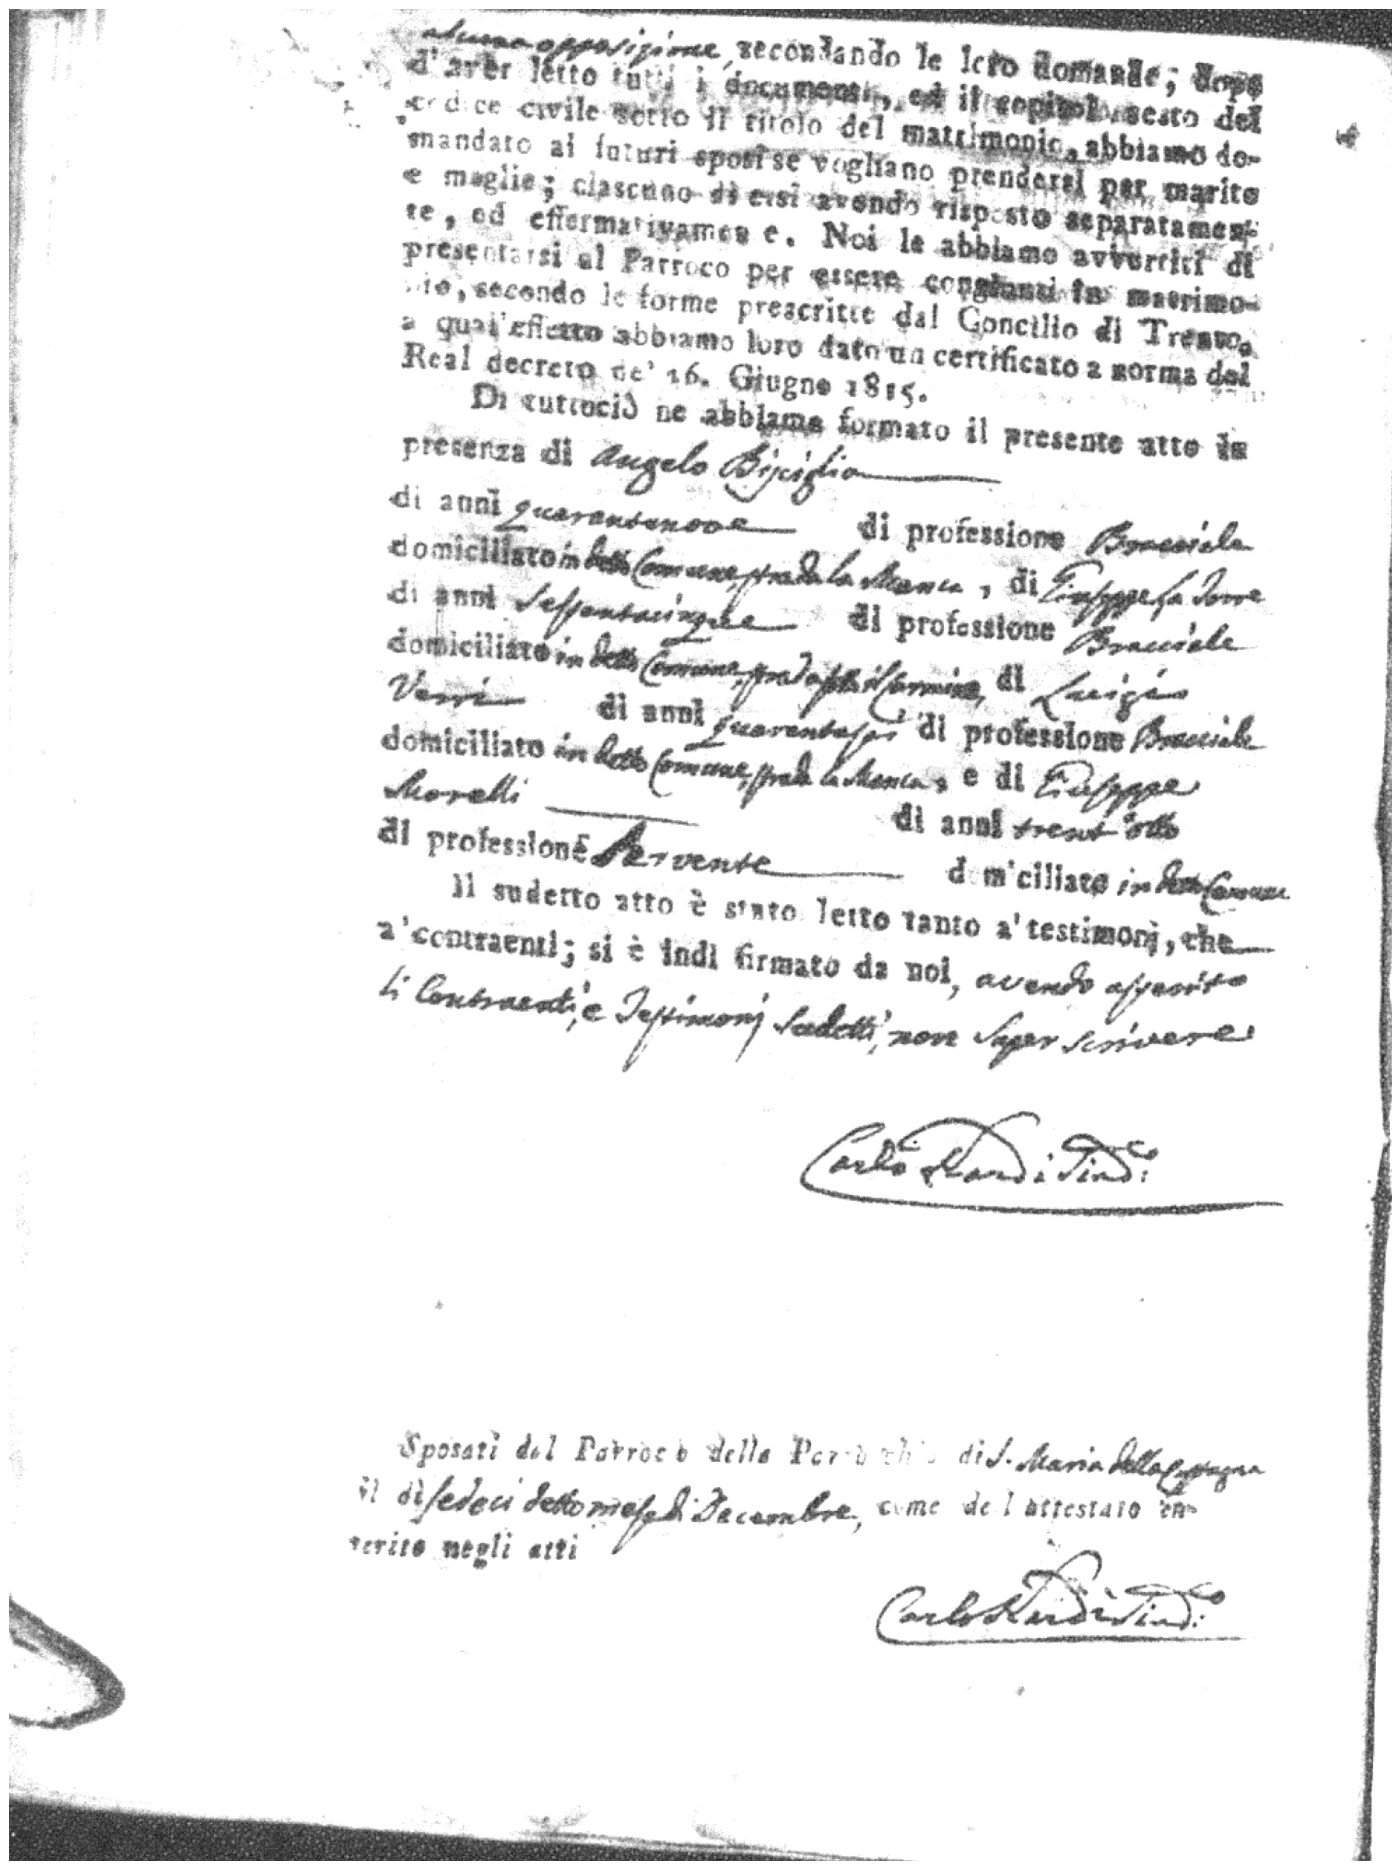 alcuna opposizione, secondando le loro domande; dopo
d'aver letto tutti i documenti, ed il capitolo sesto del
codice civile sotto il titolo del matrimonio, abbiamo do-
mandato ai futuri sposi se vogliano prendersi per marito
e moglie; ciascuno di essi avendo risposto separatamen-
te, ed effermativamen e. Noi le abbiamo avvertiti di
presentarsi al Parroco per essere congiunti in matrimo-
nio, secondo le forme prescritte dal Concilio di Trento.
a qual'effetto abbiamo loro dato un certificato a norma del
Real decreto de' 16. Giugno 1815.
Di tuttociò ne abbiamo formato il presente atto in
presenza di Angelo Bisciglia
di anni quarantanove di professione Bracciale
domiciliato in detto Comune, strada la Manca, di Giuseppe La Torre
di anni Sessantacinque di professione Bracciale
domiciliato in detto Comune, strada il Carmine, di Luigi
Verri di anni quarantasei di professione Bracciale
domiciliato in detto Comune, strada la Manca, e di Giuseppe
Morelli di anni trent'otto
di professione Servente dom'ciliato in detto Comune
Il sudetto atto è stato letto tanto a' testimonj, che
a' contraenti; si è indi firmato da noi, avendo asserito
li Contraenti, e Testimonj Sudetti, non saper scrivere
Carlo Sindº:
Sposati dal Parroco della Parrocchia di S. Maria della
il dì sedeci detto mese di Decembre, come del attestato en-
terito negli atti
Carlo Sindº: